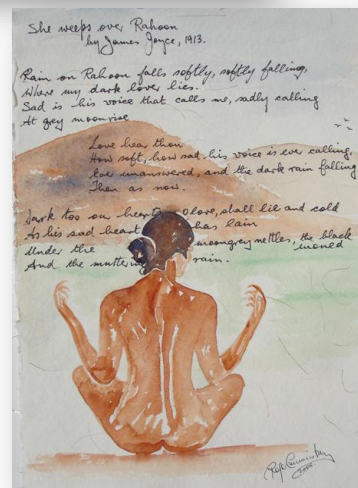 She weeps over Rahoon
by James Joyce, 1913.
Rain on Rahoon falls softly, softly falling,
Where my dark lover lies.
Sad is his voice that calls me, sadly calling
At grey moonrise
Love hear thou
How soft, how sad his voice is ever calling,
Ever unanswered, and the dark rain falling
Then as now.
Dark too our hearts O love, shall lie and cold
As his sad heart has lain
Under the moongrey nettles, the black mould
And the muttering rain.